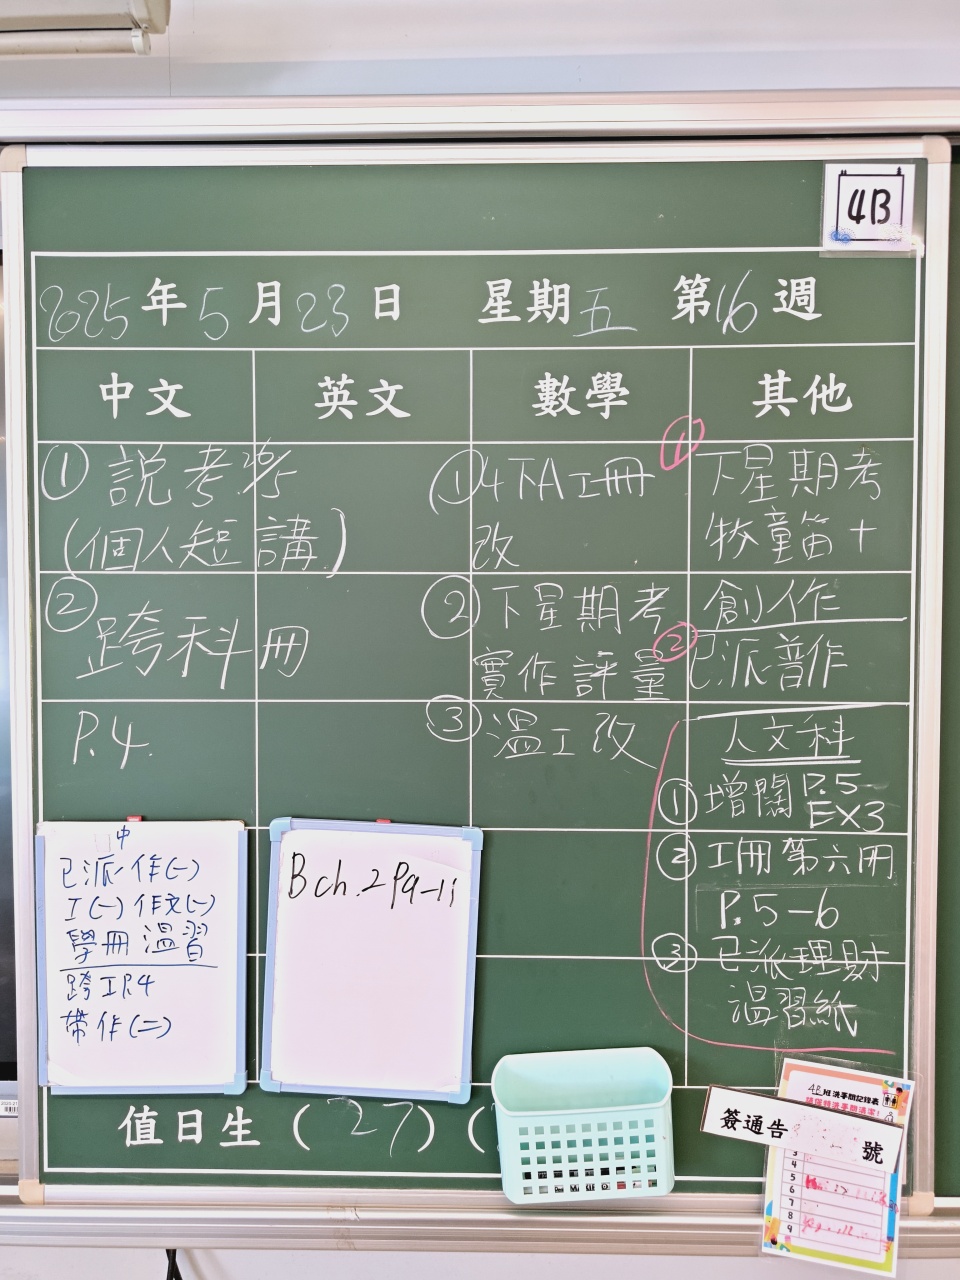 4B
2025年5月23日 星期五 第16週
中文 英文 數學 其他
① 説考26/5
(個人短講)
② 跨科冊
P.4.
① 4下A工冊
改
② 下星期考
實作評量
③ 溫工改
① 下星期考
牧童笛+
創作
② 已派普作
人文科
① 增闊 P.5
EX3
② 工冊第六冊
P.5-6
③ 已派理財
溫習紙
中
已派作(一)
工(一)作文(一)
學冊溫習
跨工P.4
帶作(二)
B ch.2 P9-11
值日生(27)(
4B班洗手間記錄表
簽通告 號
3
4
5
6
7
8
9